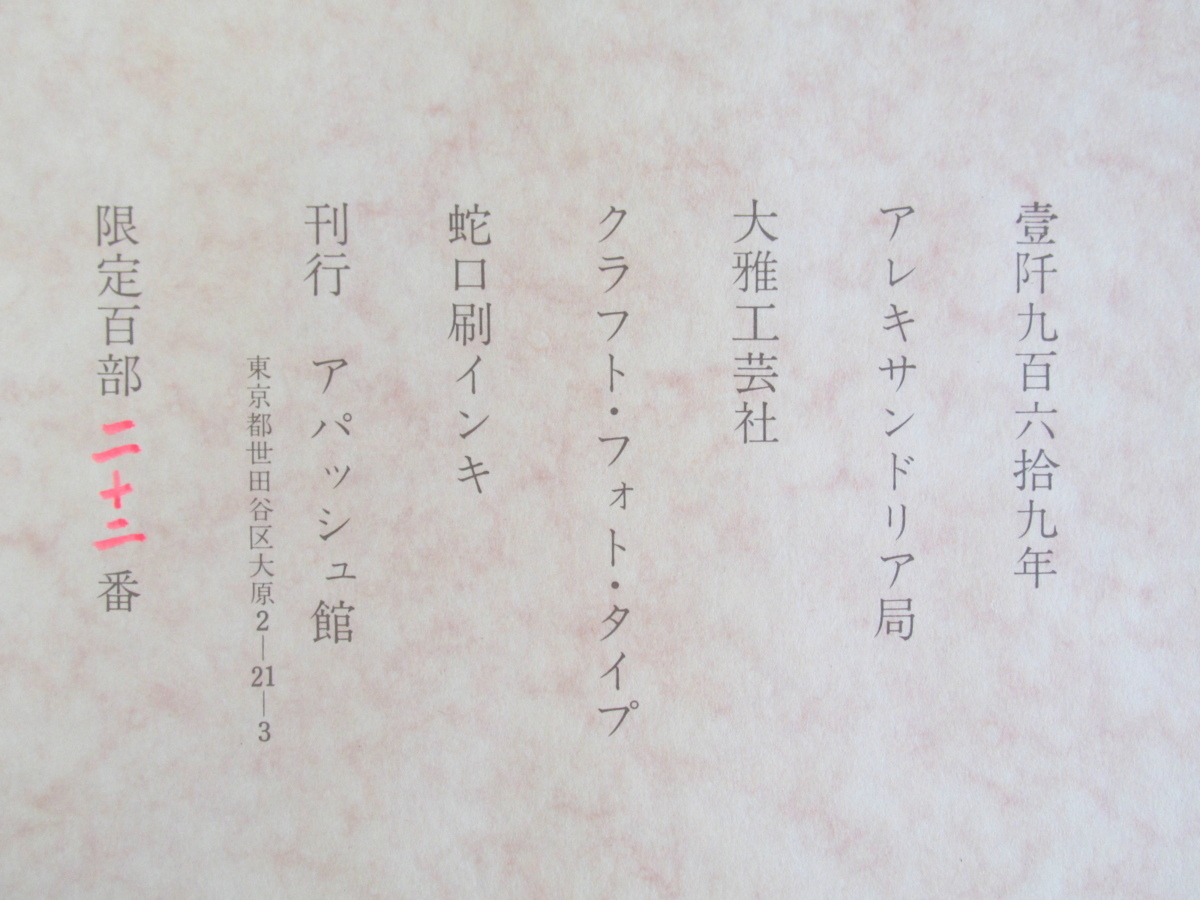 壹阡九百六拾九年
アレキサンドリア局
大雅工芸社
クラフト・フォト・タイプ
蛇口刷インキ
刊行　アパッシュ館
東京都世田谷区大原2—21—3
限定百部 二十二 番